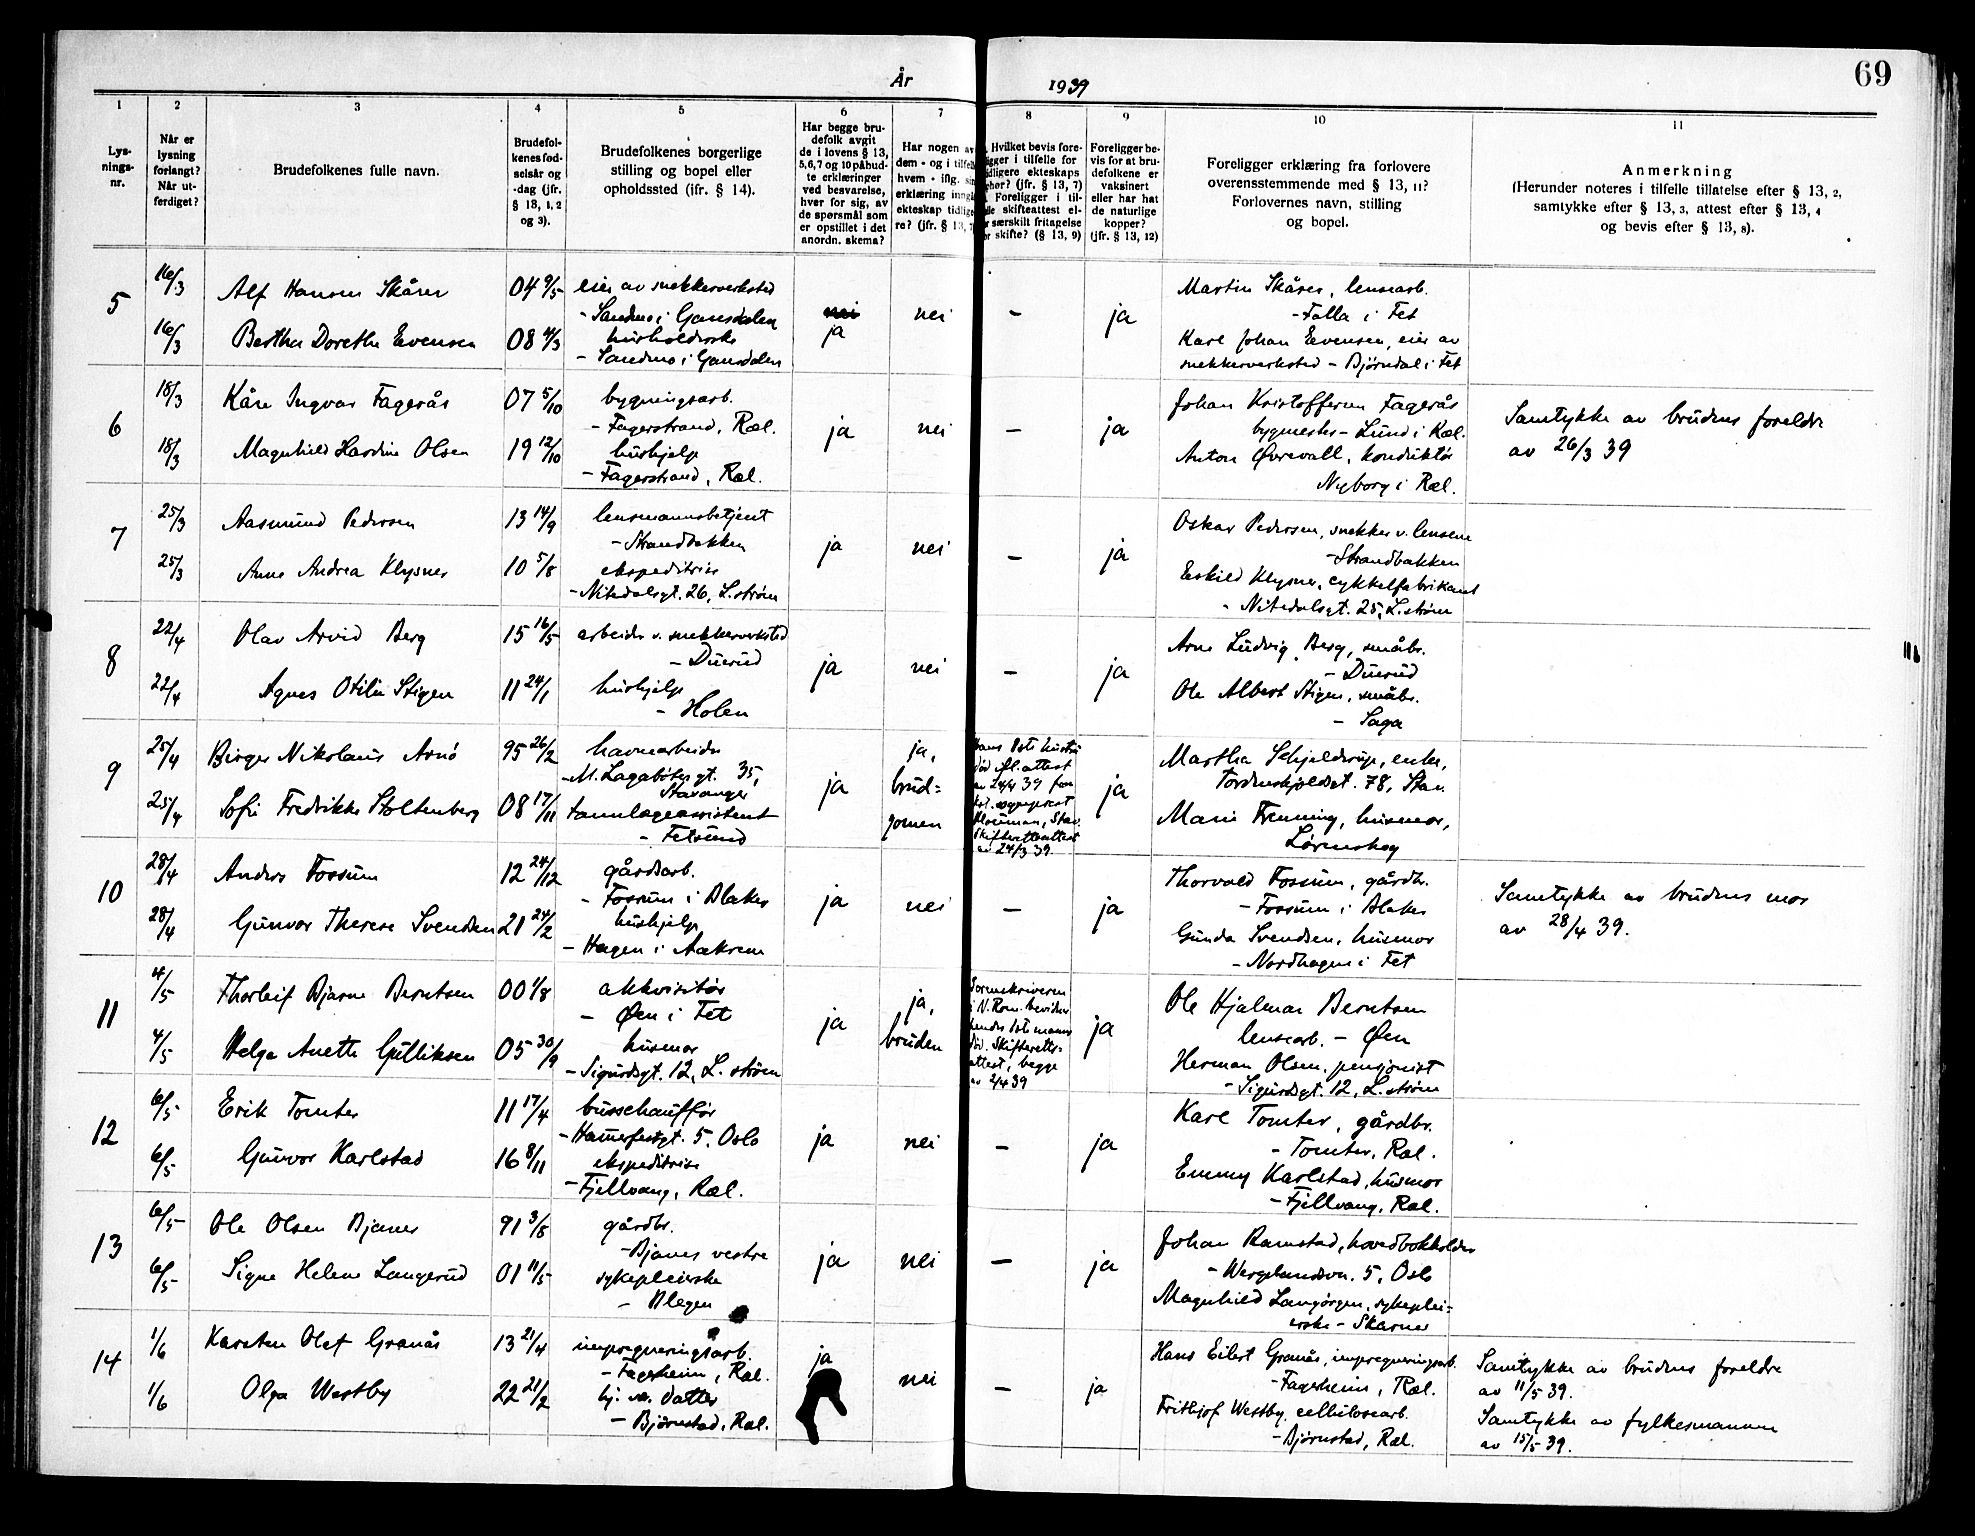 69
År 1939
1 2 3 4 5 6 7 8 9 10 11
Lys-
nings-
nr.
Når er
lysning
forlangt?
Når ut-
ferdiget?
Brudefolkenes fulle navn.
Brudefol-
kenes fød-
selsår og
-dag (jfr.
§ 13, 1, 2
og 3).
Brudefolkenes borgerlige
stilling og bopel eller
opholdssted (ifr. § 14).
Har begge bru-
defolk avgit
de i lovens § 13,
5,6,7 og 10 påbud-
te erklæringer
ved besvarelse,
hver for sig, av
de spørsmål som
er opstillet i det
anordn. skema?
Har nogen av
dem - og i tilfelle
hvem - iflg. sin
erklæring inngått
ekteskap tidlige-
re? (jfr. § 13, 7
Hvilket bevis fore-
ligger i tilfelle for
tidligere ekteskaps
ophør? (jfr. § 13, 7)
Foreligger i til-
felle skifteattest el-
ler særskilt fritagelse
for skifte? (§ 13, 9)
Foreligger be-
vis for at bru-
defolkene er
vaksinert
eller har hat
de naturlige
kopper?
(jfr. § 13, 12)
Foreligger erklæring fra forlovere
overensstemmende med § 13, 11?
Forlovernes navn, stilling
og bopel.
Anmerkning
(Herunder noteres i tilfelle tillatelse efter § 13, 2,
samtykke efter § 13, 3, attest efter § 13, 4
og bevis efter § 13, 8).
5
16/3 Alf Hansen Skårer 04 9/5 eier av snekkerverksted
- Sandmo i Gansdalen
16/3 Bertha Dorethe Evensen 08 4/3 husholderske
- Sandmo i Gansdalen
nei
ja nei - ja
Martin Skårer, lensearb.
- Falla i Fet
Karl Johan Evensen, eier av
snekkerverksted - Bjørndal i Fet
6
18/3 Kåre Ingvar Fagerås 07 5/10 bygningsarb.
- Fagerstrand, Ræl.
18/3 Magnhild Hardine Olsen 19 12/10 hushjelp
- Fagerstrand, Ræl.
ja nei - ja
Johan Kristoffersen Fagerås
bygmester - Lund i Ræl.
Anton Øvrevall, konduktør
Nyborg i Ræl.
Samtykke av brudens foreldre
av 26/3 39
7
25/3 Aasmund Pedersen 13 14/9 lensmannsbetjent
- Strandbakken
25/3 Anne Andrea Klysner 10 5/8 ekspeditrise
- Nitedalsgt. 26, L.strøm
ja nei - ja
Oskar Pedersen, snekker v. lensene
- Strandbakken
Eskild Klysner, cykkelfabrikant
- Nitedalsgt. 25, L.strøm
8
22/4 Olav Arvid Berg 15 16/5 arbeider v. snekkerverksted
- Duerud
22/4 Agnes Otilie Stigen 11 24/1 hushjelp
- Holen
ja nei - ja
Arne Ludvig Berg, småbr.
- Duerud
Ole Albert Stigen, småbr.
- Saga
9
25/4 Birger Nikolaus Arnö 95 26/2 havnearbeider
- M. Lagabøtersgt. 35,
Stavanger
25/4 Sofie Fredrikke Stoltenberg 08 17/11 tannlegeassistent
- Fetsund
ja
ja,
brud=
gomen
Hans siste hustru
død fl. attest
av 24/4 39 fra
res. sogneprest
Klouman, Stav.
Skifterettsattest
av 24/3 39.
ja
Martha Schjelderup, enke,
Tordenskjoldsgt. 78, Stav.
Marie Frenning, husmor,
Lørenskog
10
28/4 Anders Fossum 12 24/12 gårdsarb.
- Fossum i Blaker
28/4 Gunvor Therese Svendsen 21 24/2 hushjelp
- Hagen i Aakrene
ja nei - ja
Thorvald Fossum, gårdbr.
- Fossum i Blaker
Gunda Svendsen, husmor
- Nordhagen i Fet
Samtykke av brudens mor
av 28/4 39.
11
4/5 Thorleif Bjarne Berntsen 00 1/8 akkvisitør
- Øen i Fet
4/5 Helga Anette Gulliksen 05 30/9 husmor
- Sigurdsgt. 12, L.strøm
ja
ja,
bruden
Sorenskriveren
i N. Rom. bevidner
hendes siste mann
død. Skifteretts-
attest, begge
av 2/4 39
ja
Ole Hjalmar Berntsen
lensearb. - Øen
Herman Olsen, pensjonist
- Sigurdsgt. 12, L.strøm
12
6/5 Erik Tomter 11 17/4 busschauffør
- Hammerfestgt. 5, Oslo
6/5 Gunvor Karlstad 16 8/11 ekspeditrise
- Fjellvang, Ræl.
ja nei - ja
Karl Tomter, gårdbr.
- Tomter, Ræl.
Emmy Karlstad, husmor
- Fjellvang, Ræl.
13
6/5 Ole Olsen Bjanes 91 3/8 gårdbr.
- Bjanes vestre
6/5 Signe Helene Langerud 01 11/5 sykepleierske
- Blegen
ja nei - ja
Johan Ramstad, hovedbokholder
- Wergelandsvn. 5, Oslo
Magnhild Langørgen, sykeplei=
erske - Skarnes
14
1/6 Karsten Olef Granås 13 21/4 impregneringsarb.
- Fagerheim, Ræl.
1/6 Olga Westby 22 21/2 hj. vær. datter
- Bjørnstad, Ræl.
ja nei - ja
Hans Eilert Granås, impregneringsarb.
- Fagerheim, Ræl.
Frithjof Westby, cellulosearb.
- Bjørnstad, Ræl.
Samtykke av brudens foreldre
av 11/5 39.
Samtykke av fylkesmannen
av 15/5 39.